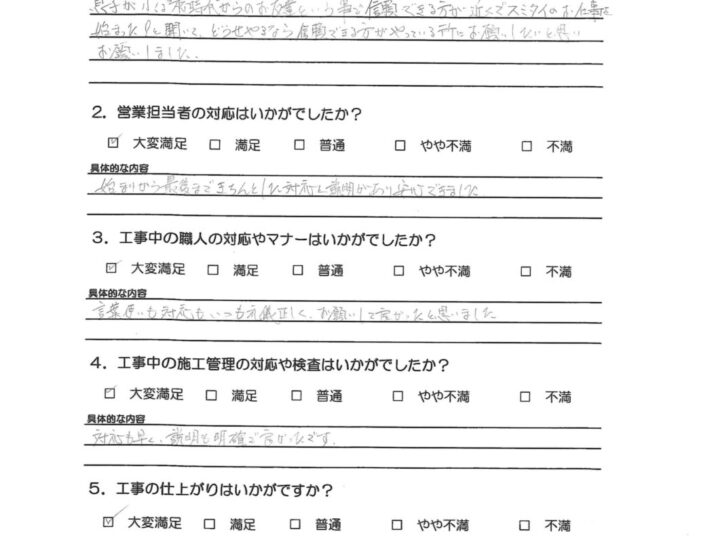 息子が小さい頃からのお付き合いという事で信頼できる方が近くでスミタイのお仕事を
始めたと聞いて、どうせやるなら信頼できる方がやっている所にお願いしたいと思い
お願いしました。
2. 営業担当者の対応はいかがでしたか？
☑ 大変満足 □ 満足 □ 普通 □ やや不満 □ 不満
具体的な内容
始まりから最後まできちんとした対応と説明があり安心できました
3. 工事中の職人の対応やマナーはいかがでしたか？
☑ 大変満足 □ 満足 □ 普通 □ やや不満 □ 不満
具体的な内容
言葉使いも対応もいつも礼儀正しく、お願いして良かったと思いました
4. 工事中の施工管理の対応や検査はいかがでしたか？
☑ 大変満足 □ 満足 □ 普通 □ やや不満 □ 不満
具体的な内容
対応も早く、説明も明確で良かったです。
5. 工事の仕上がりはいかがですか？
☑ 大変満足 □ 満足 □ 普通 □ やや不満 □ 不満